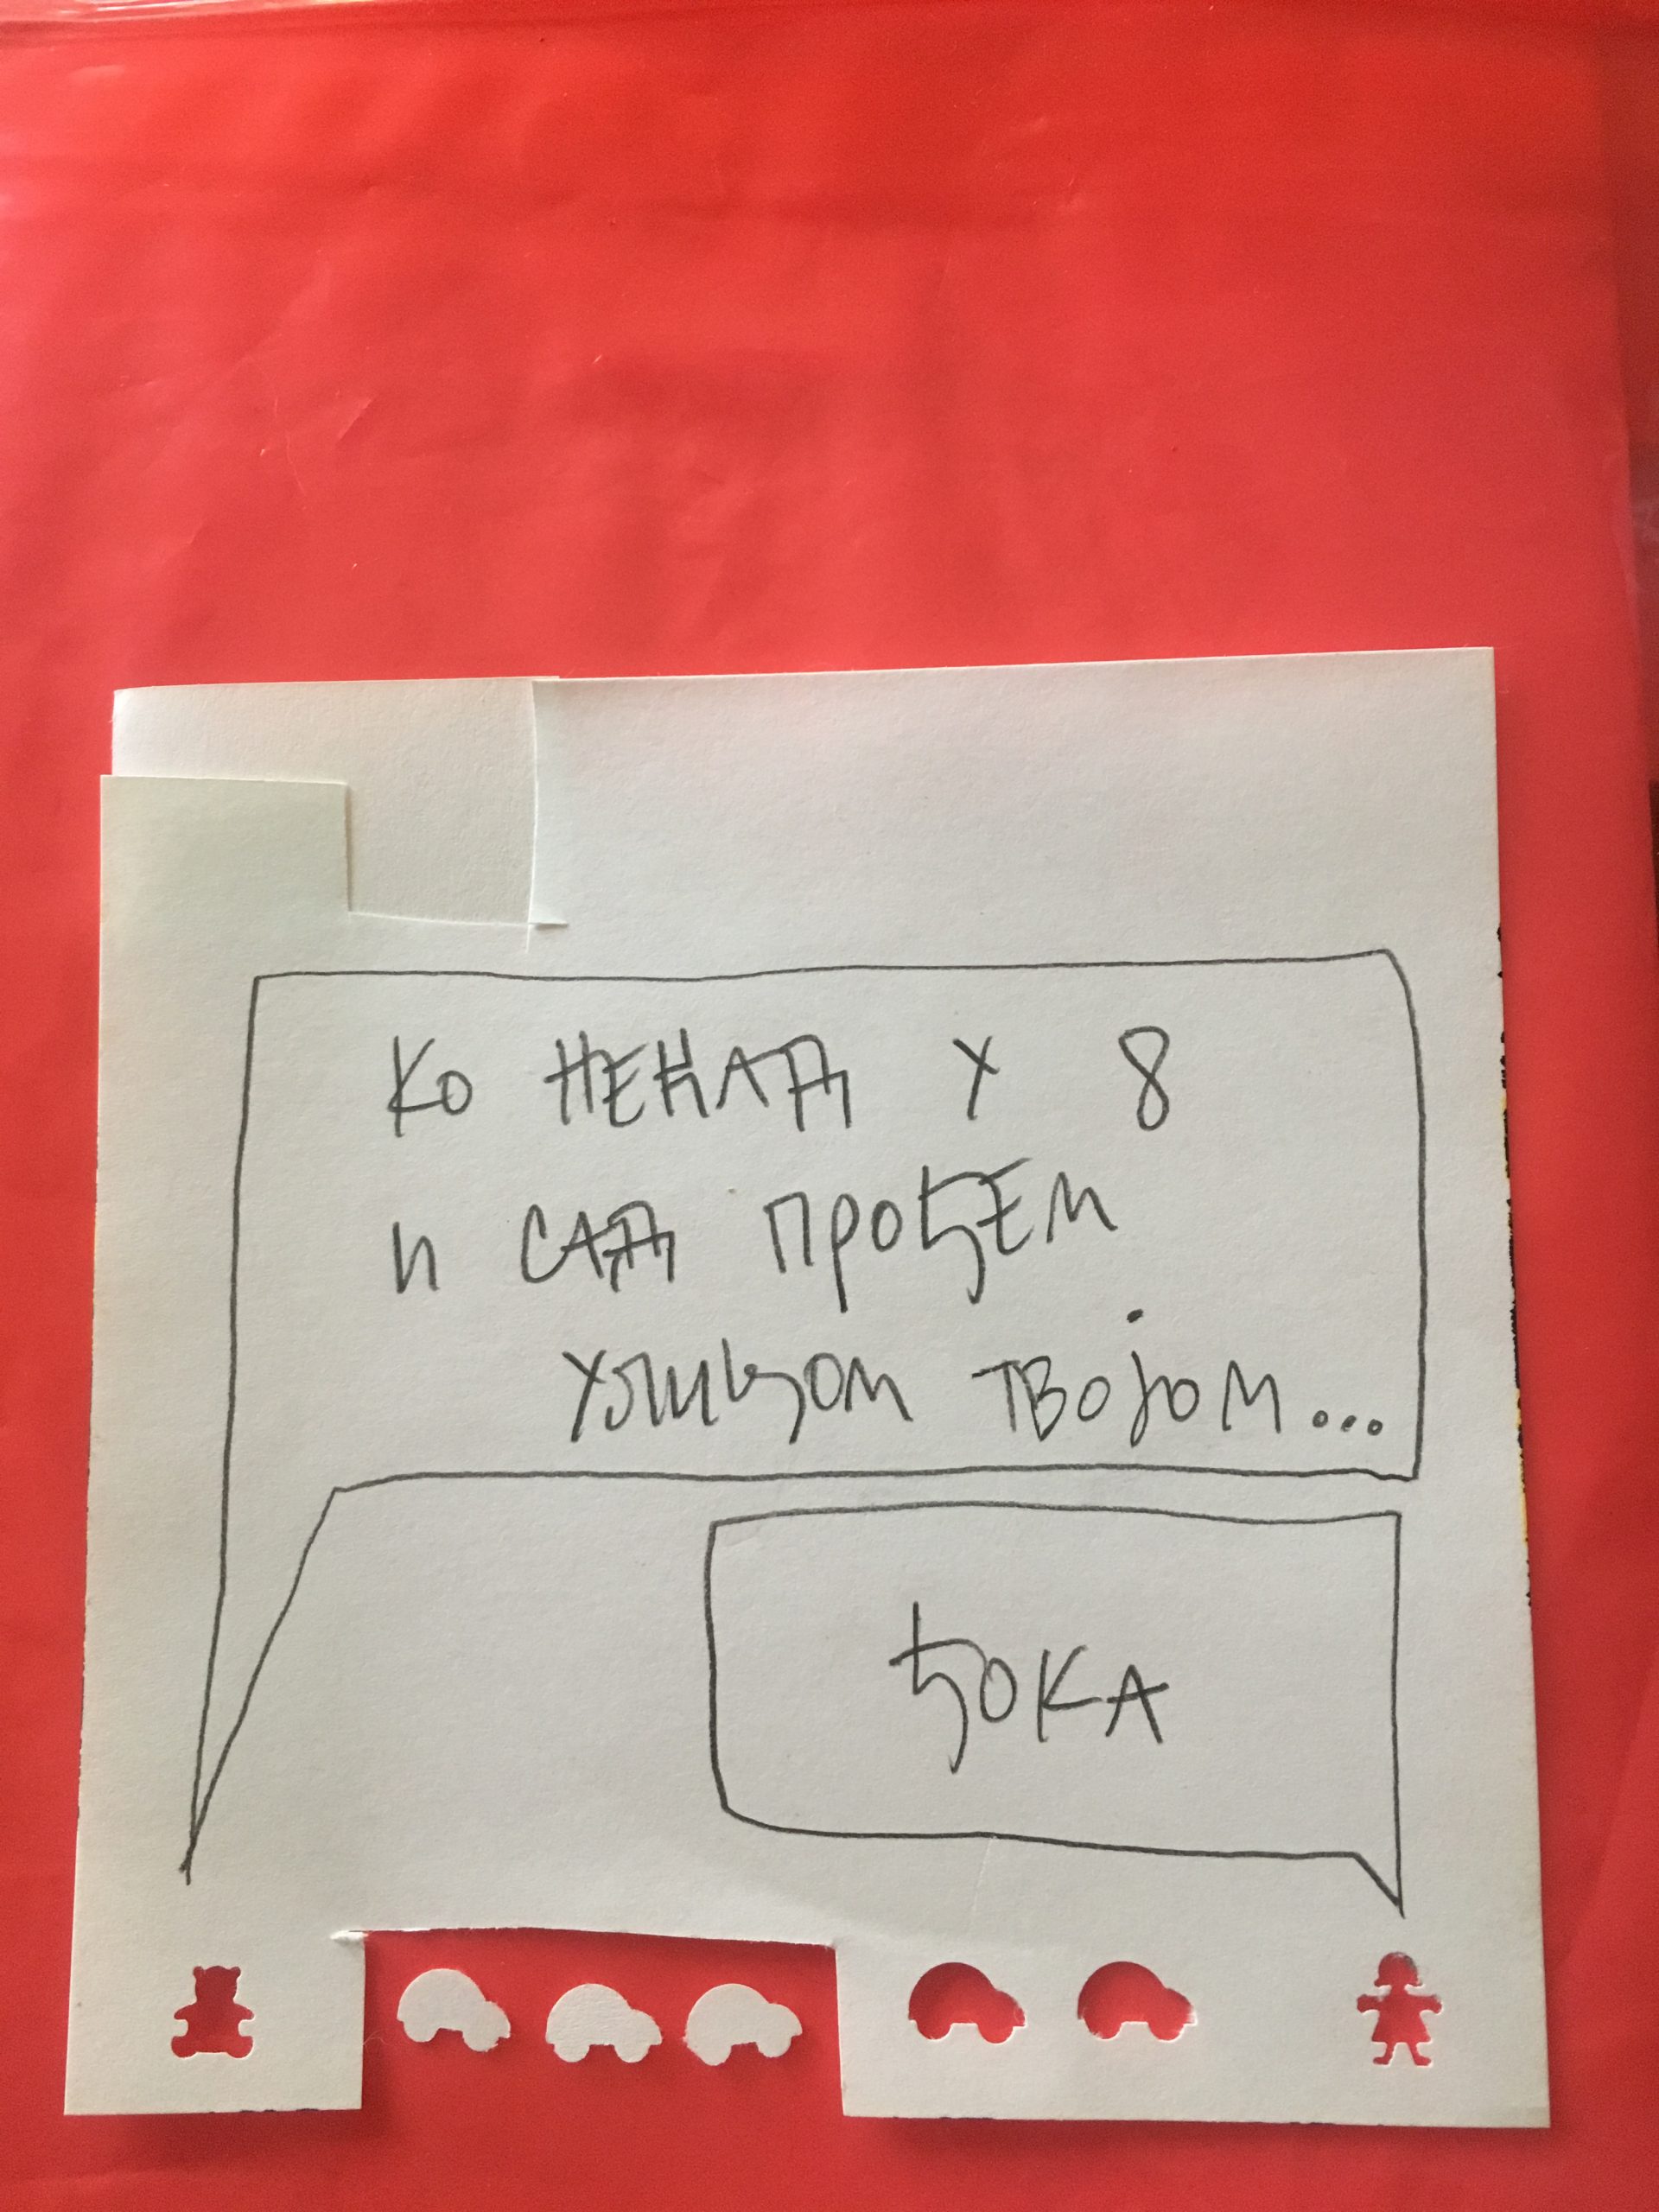 КО НЕКАД У 8
И САД ПРОЂЕМ
УЛИЦОМ ТВОЈОМ...
ЂОКА